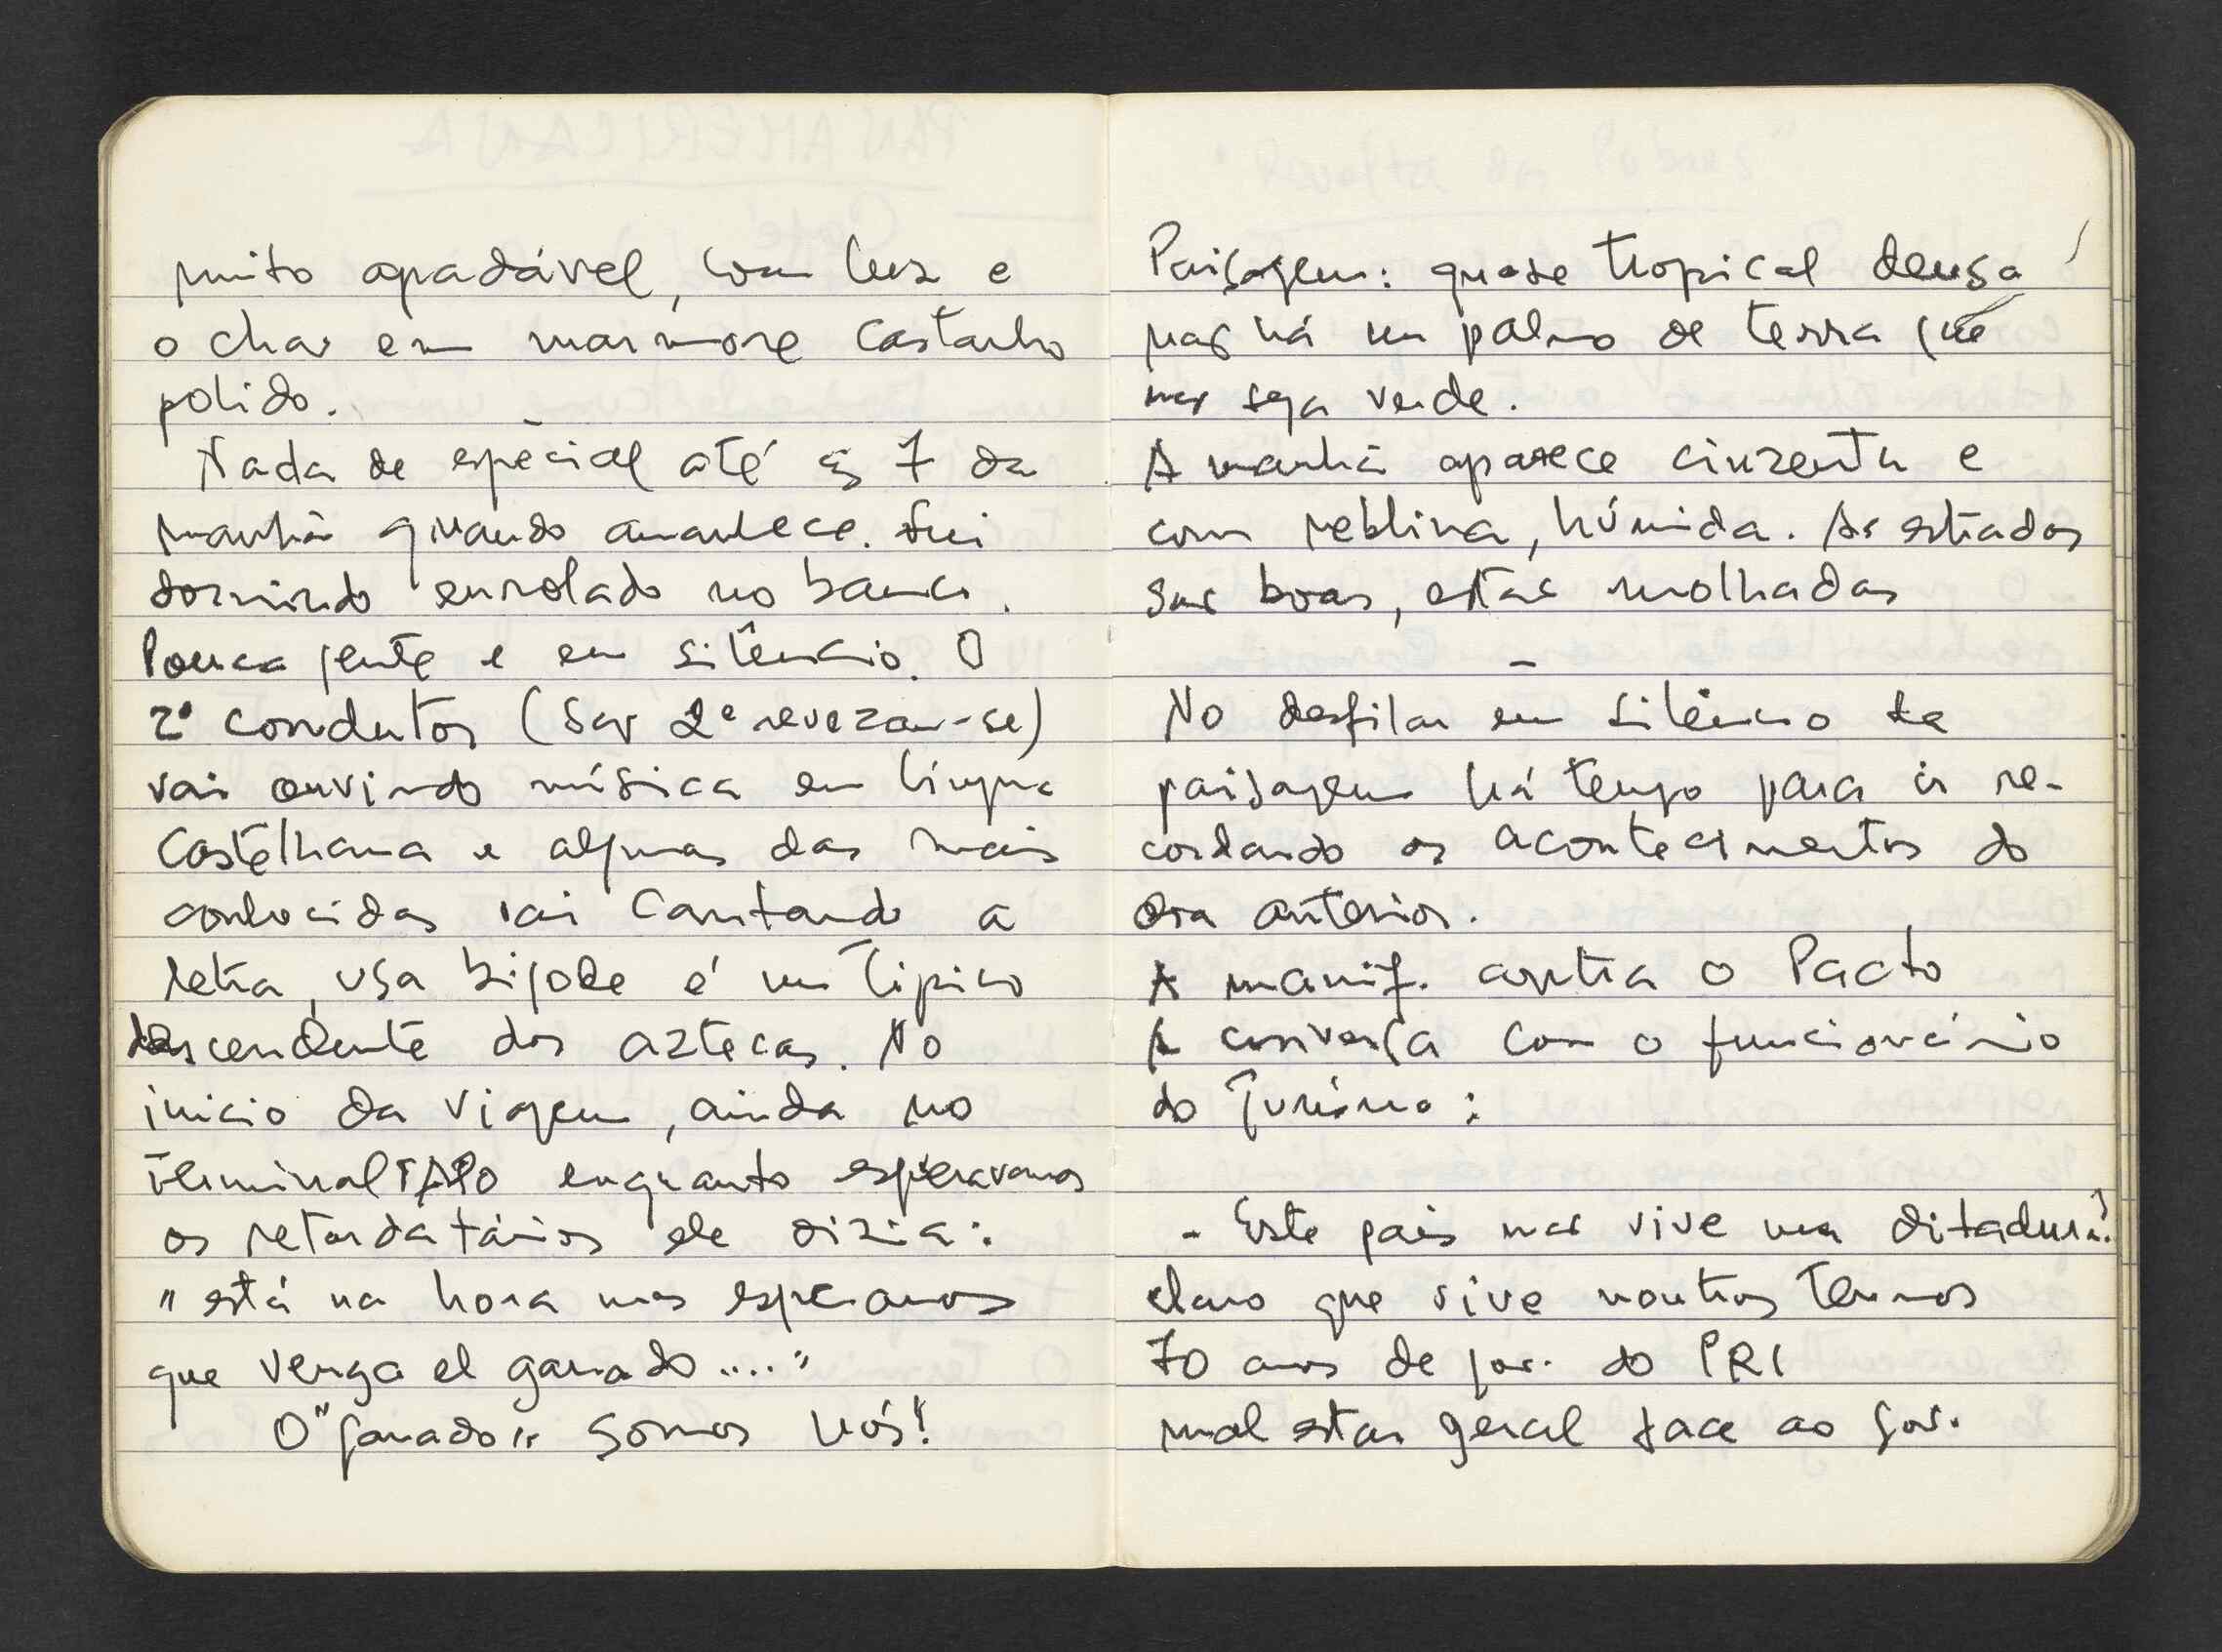 muito agradável, com luz e
o chão em marmore castanho
polido.
Nada de especial até às 7 da
manhã quando amanhece. Fui
dormindo enrolado no banco.
Pouca gente e em silêncio. O
2º condutor (são 2 e revezam-se)
vai ouvindo música em língua
Castelhana e algumas das mais
conhecidas vai cantando a
letra, usa bigode é um tipico
descendente dos aztecas. No
inicio da viagem, ainda no
terminal TAPO enquanto esperavamos
os retardatários ele dizia:
"está na hora mas esperamos
que venga el ganado...."
O "ganado" somos nós!
Paisagem: quase tropical densa
não há um palmo de terra que
não seja verde.
A manhã aparece cinzenta e
com neblina, húmida. As estradas
são boas, estão molhadas
–
No desfilar em silêncio da
paisagem há tempo para ir re-
cordando os acontecimentos do
dia anterior.
A manif. contra o Pacto
A conversa com o funcionário
do Turismo:
- Este pais não vive uma ditadura?
claro que vive noutros termos
70 anos de gov. do PRI
mal estar geral face ao gov.